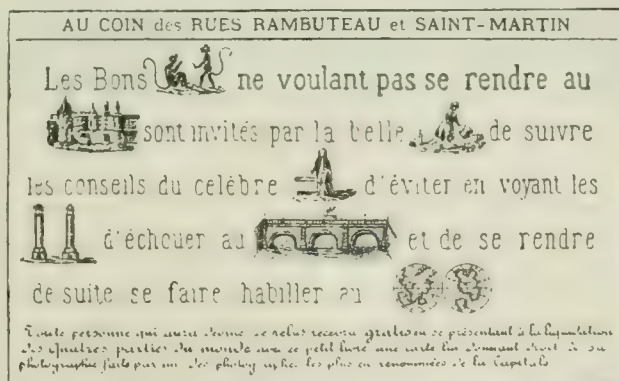 AU COIN des RUES RAMBUTEAU et SAINT-MARTIN
Les Bons ne voulant pas se rendre au
sont invités par la belle de suivre
les conseils du celèbre d'éviter en voyant les
d'échouer au et de se rendre
de suite se faire habiller au
Toute personne qui aura deviné ce rebus recevra gratis en se présentant à la liquidation
des Quatres parties du monde avec ce petit livre une carte lui donnant droit à sa
photographie faite par un des photographes les plus en renommées de la Capitale